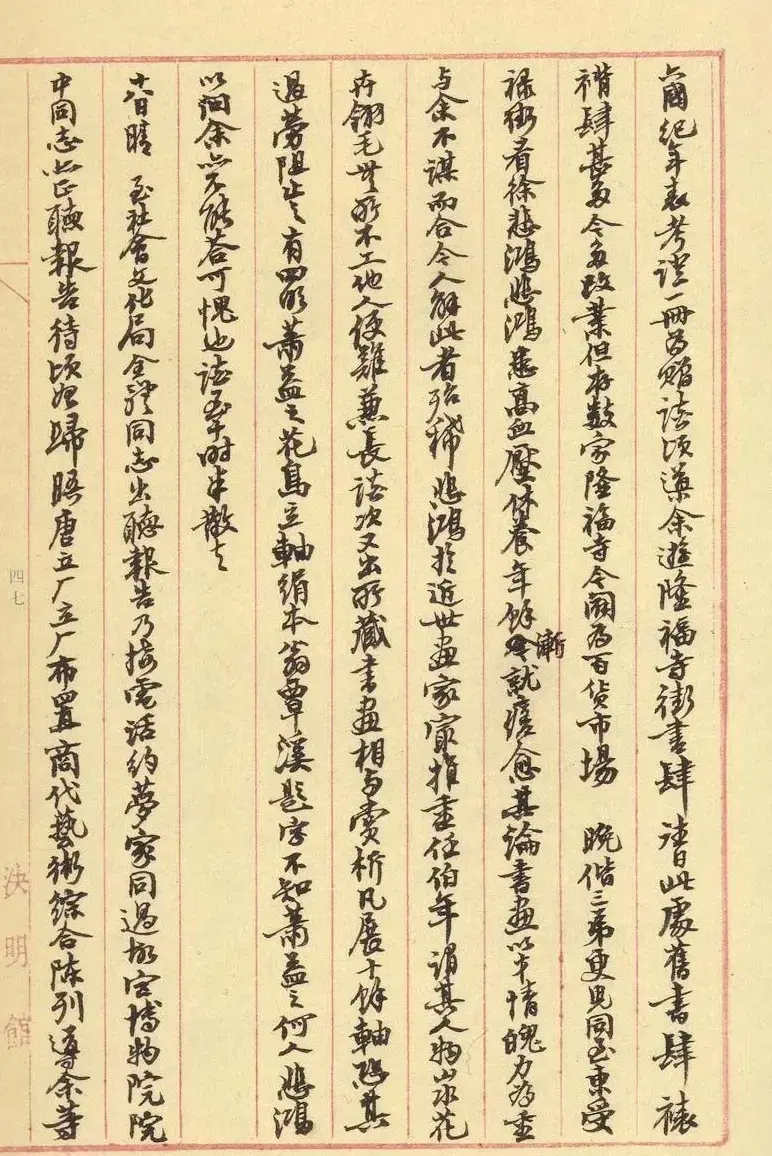 六國紀年表考證一冊為贈談頃導余遊隆福寺街書肆 昔日此處舊書肆裱
褙肆甚多今多改業但存數家隆福寺今闢為百貨市場 晚偕三弟更兄同至東受
祿街看徐悲鴻悲鴻患高血壓休養年餘漸就痊愈其論書畫以才情魄力為重
与余不謀而合今人解此者殆稀悲鴻於近世畫家最推重任伯年謂其人物山水花
卉翎毛無所不工他人便難兼長談次又出所藏書畫相与賞析凡展十餘軸恐其
過勞阻止之有四明蕭益之花鳥立軸絹本翁覃溪題字不知蕭益之何人悲鴻
以詢余亦不能答可愧也談至十時半散之
十八日晴 至社會文化局全體同志出聽報告乃撥電話約夢家同過故宮博物院院
中同志亦正聽報告待頃始歸晤唐立厂立厂布置商代藝術綜合陳列導余等
四七
決明館